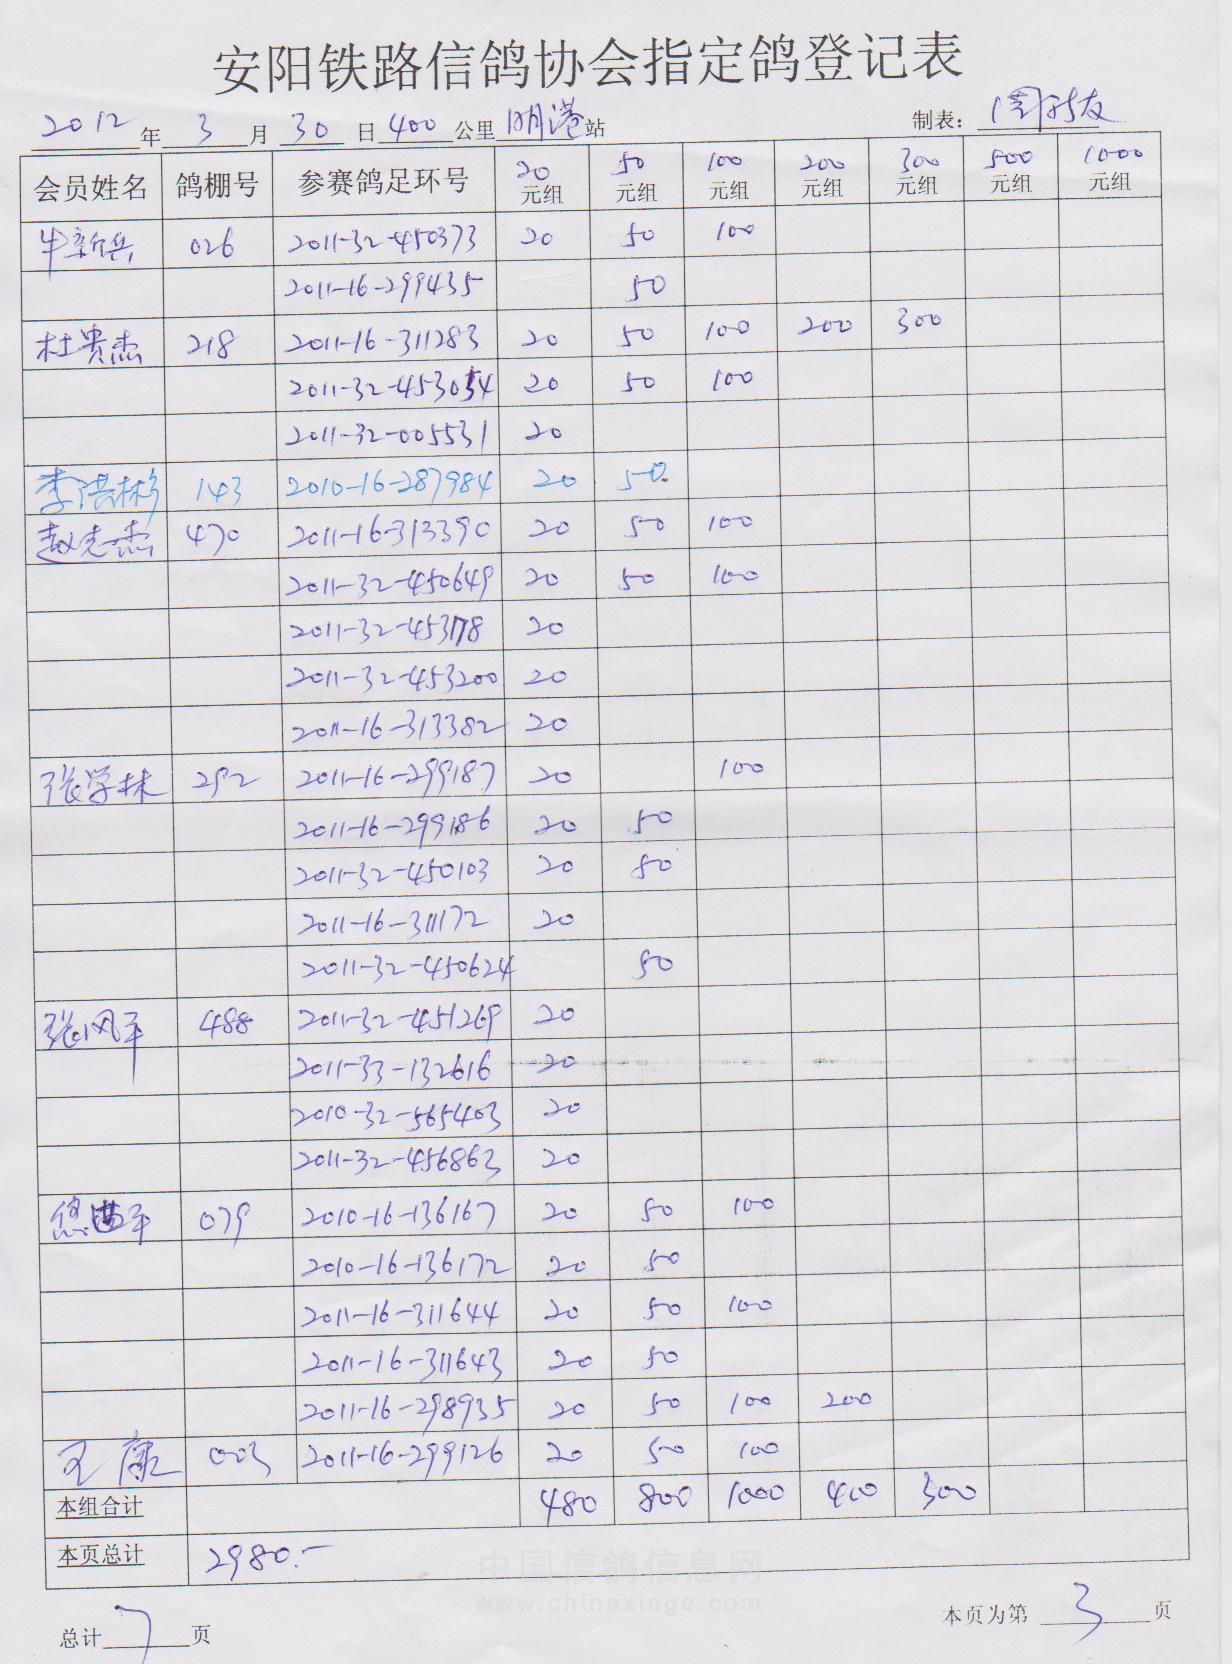 安阳铁路信鸽协会指定鸽登记表
2012年 3 月 30 日 400 公里 明港站 制表：周新友
会员姓名 鸽棚号 参赛鸽足环号 20元组 50元组 100元组 200元组 300元组 500元组 1000元组
牛新兵 026 2011-32-450373 20 50 100
2011-16-299435 50
杜贵杰 218 2011-16-311283 20 50 100 200 300
2011-32-453054 20 50 100
2011-32-005531 20
李洪彬 143 2010-16-287984 20 50.
赵志杰 470 2011-16-313390 20 50 100
2011-32-450649 20 50 100
2011-32-453178 20
2011-32-453200 20
2011-16-313382 20
张学林 292 2011-16-299187 20 100
2011-16-299186 20 50
2011-32-450103 20 50
2011-16-311172 20
2011-32-450624 50
张风平 488 2011-32-451269 20
2011-33-132616 20
2010-32-565403 20
2011-32-456863 20
平 079 2010-16-136167 20 50 100
2010-16-136172 20 50
2011-16-311644 20 50 100
2011-16-311643 20 50
2011-16-298935 20 50 100 200
王康 003 2011-16-299126 20 50 100
本组合计 480 800 1000 400 300
本页总计 2980.-
中国信鸽信息网
www.chinaxinge.com
总计 7 页 本页为第 3 页